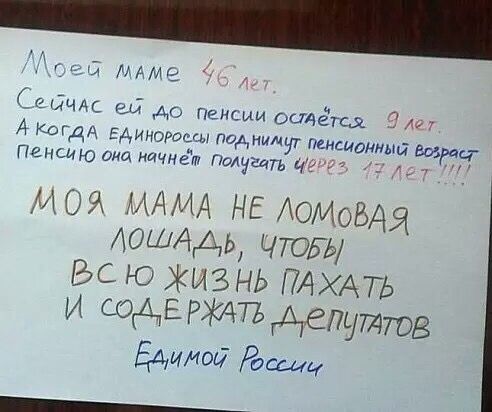 Моей маме 46 лет.
Сейчас ей до пенсии остаётся 9 лет.
А когда единороссы поднимут пенсионный возраст
пенсию она начнёт получать через 17 лет!!!!
МОЯ МАМА НЕ ЛОМОВАЯ
ЛОШАДЬ, ЧТОБЫ
ВСЮ ЖИЗНЬ ПАХАТЬ
И СОДЕРЖАТЬ ДЕПУТАТОВ
Едимой России